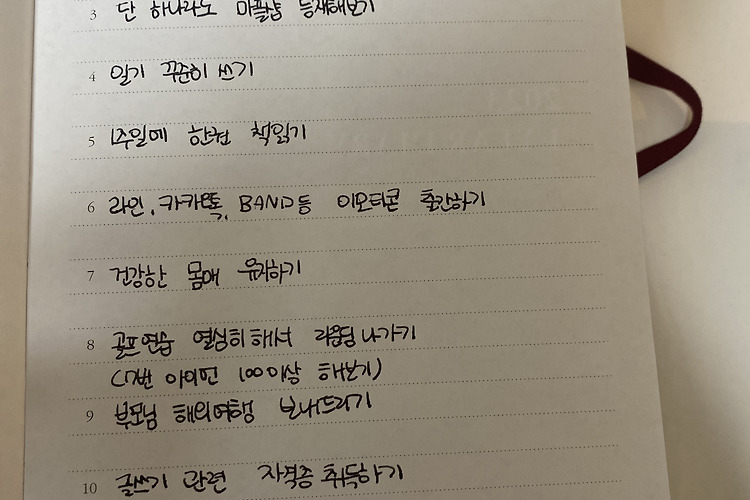 3 단 하나라도 마플샵 등재해보기
4 일기 꾸준히 쓰기
5 1주일에 한권 책읽기
6 라인, 카카오톡, BAND등 이모티콘 출간하기
7 건강한 몸매 유지하기
8 골프연습 열심히해서 라운딩 나가기
(7번 아이언 100이상 해보기)
9 부모님 해외여행 보내드리기
10 글쓰기 관련 자격증 취득하기